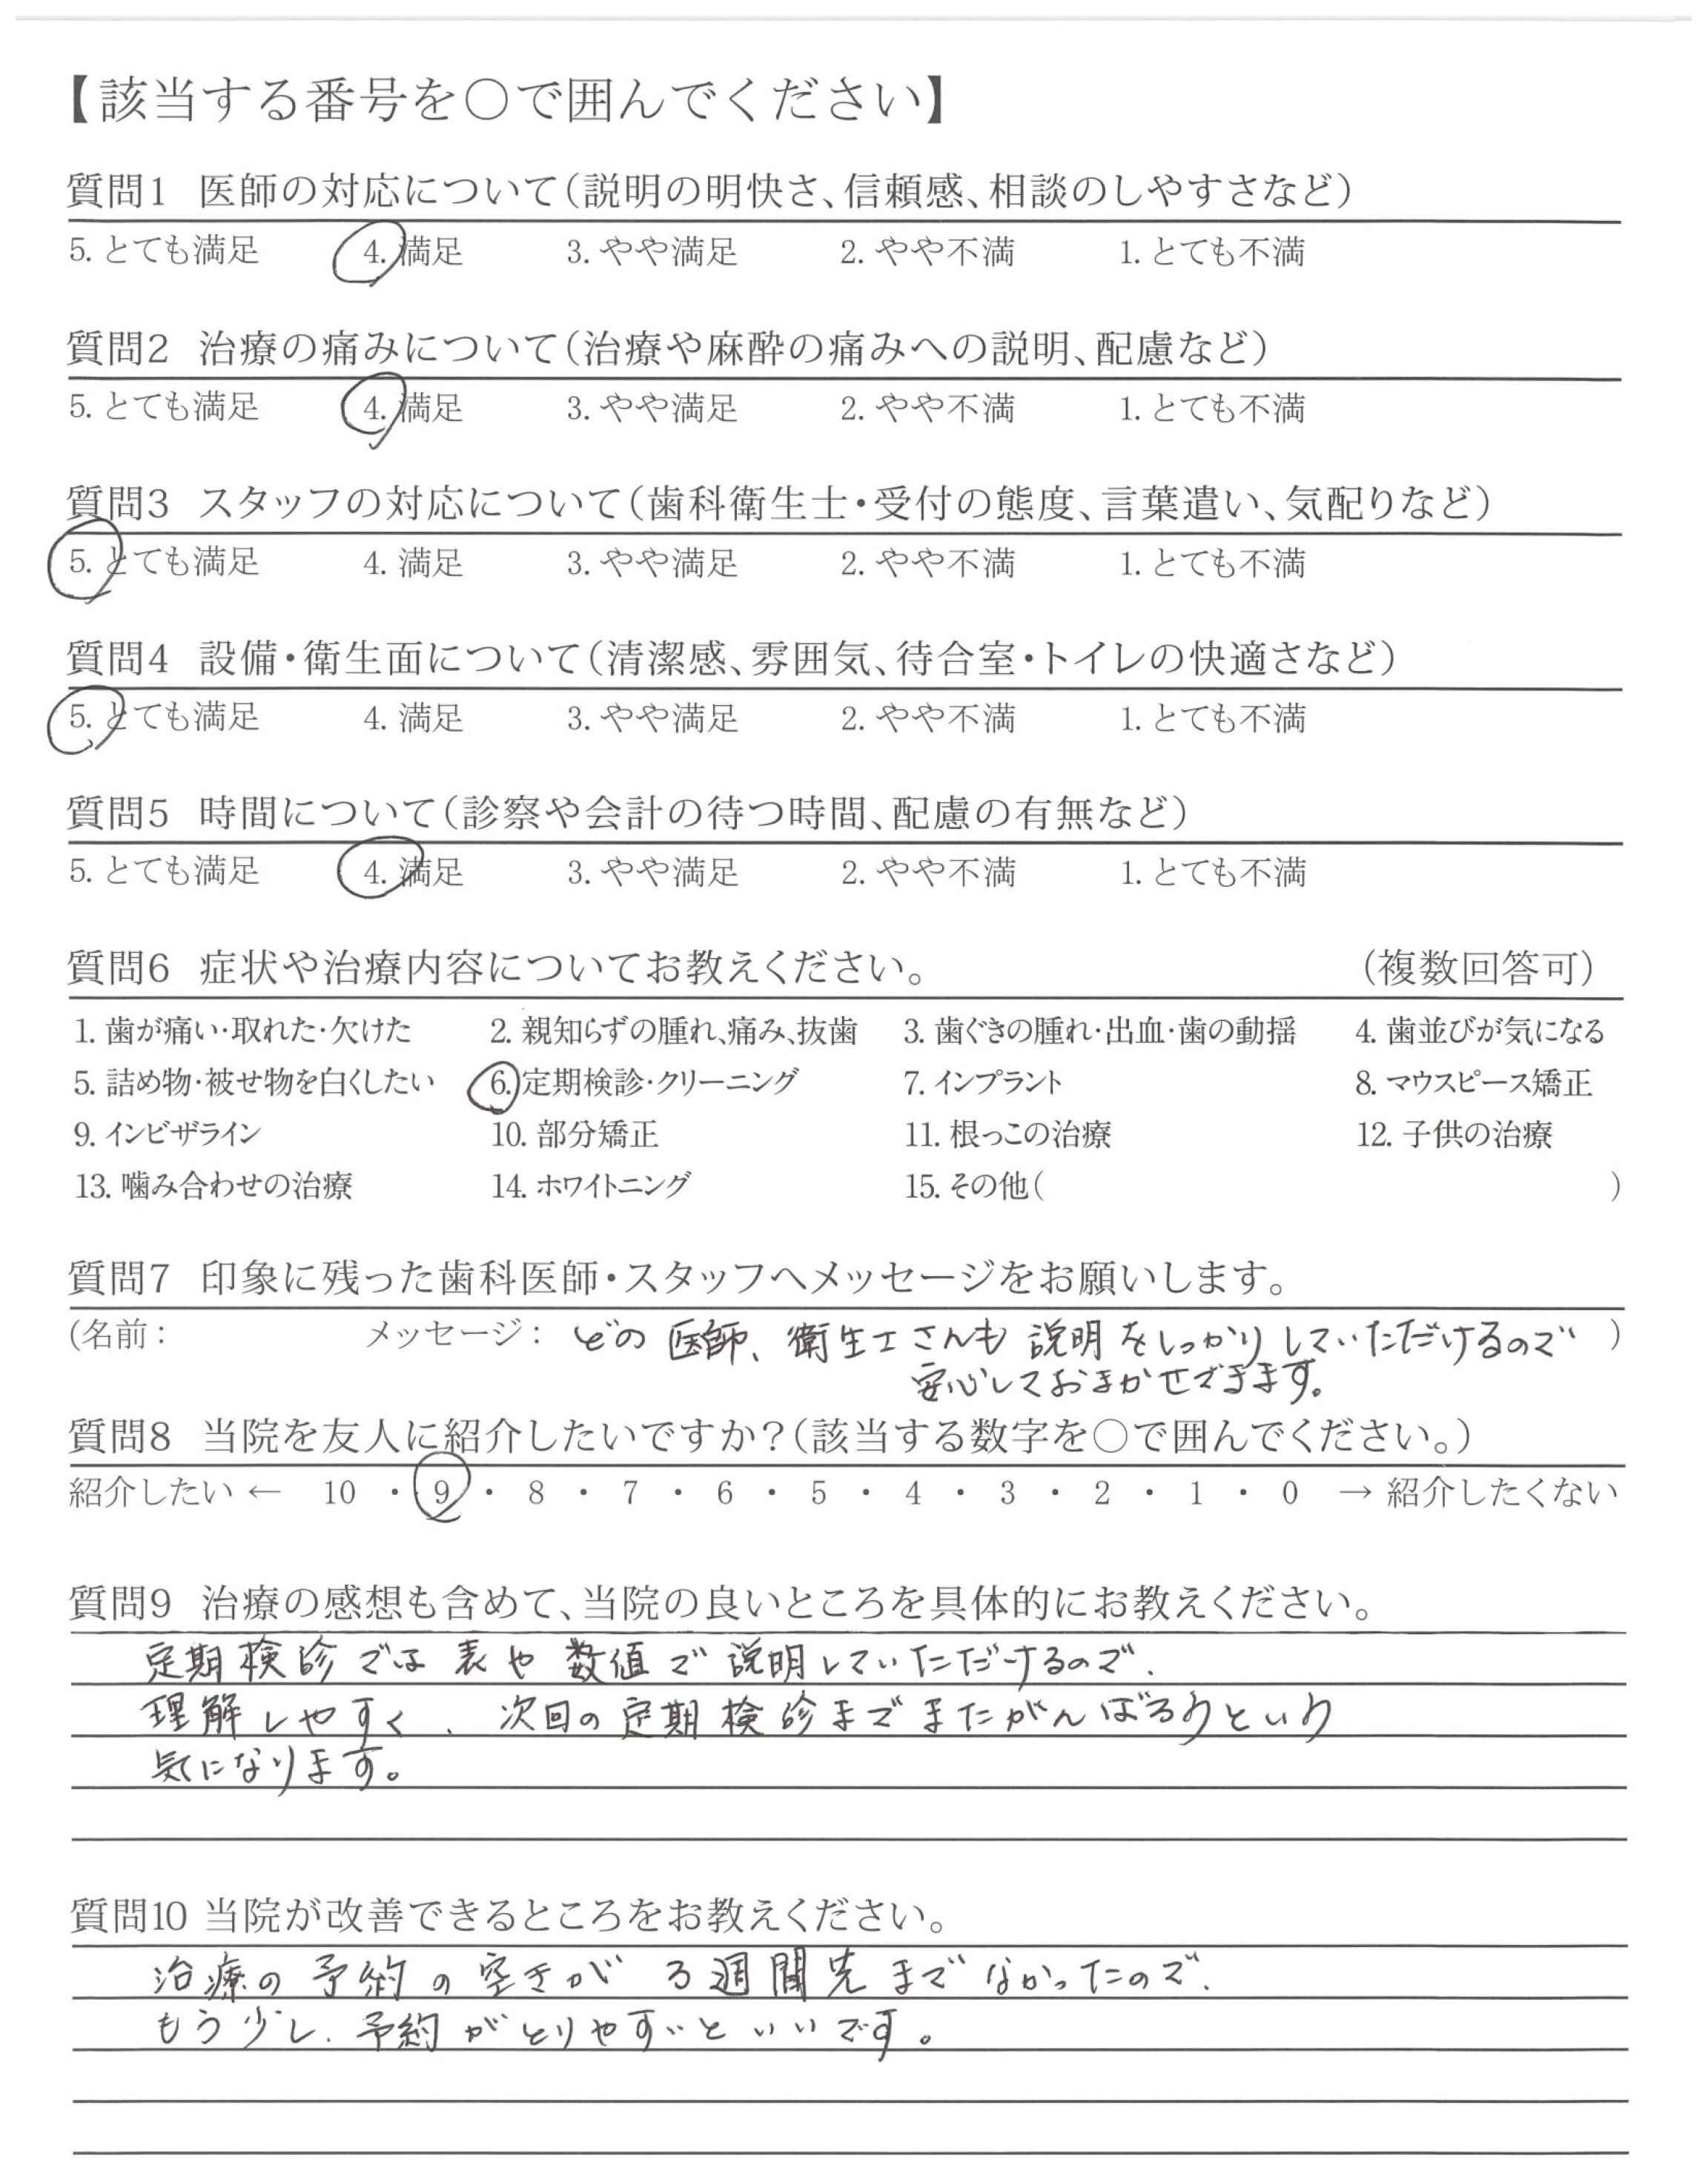 【該当する番号を○で囲んでください】
質問1 医師の対応について(説明の明快さ、信頼感、相談のしやすさなど)
5. とても満足 4. 満足 3. やや満足 2. やや不満 1. とても不満
質問2 治療の痛みについて(治療や麻酔の痛みへの説明、配慮など)
5. とても満足 4. 満足 3. やや満足 2. やや不満 1. とても不満
質問3 スタッフの対応について(歯科衛生士・受付の態度、言葉遣い、気配りなど)
5. とても満足 4. 満足 3. やや満足 2. やや不満 1. とても不満
質問4 設備・衛生面について(清潔感、雰囲気、待合室・トイレの快適さなど)
5. とても満足 4. 満足 3. やや満足 2. やや不満 1. とても不満
質問5 時間について(診察や会計の待つ時間、配慮の有無など)
5. とても満足 4. 満足 3. やや満足 2. やや不満 1. とても不満
質問6 症状や治療内容についてお教えください。 (複数回答可)
1. 歯が痛い・取れた・欠けた 2. 親知らずの腫れ、痛み、抜歯 3. 歯ぐきの腫れ・出血・歯の動揺 4. 歯並びが気になる
5. 詰め物・被せ物を白くしたい 6. 定期検診・クリーニング 7. インプラント 8. マウスピース矯正
9. インビザライン 10. 部分矯正 11. 根っこの治療 12. 子供の治療
13. 噛み合わせの治療 14. ホワイトニング 15. その他( )
質問7 印象に残った歯科医師・スタッフへメッセージをお願いします。
(名前： メッセージ： どの医師、衛生士さんも説明をしっかりしていただけるので )
安心しておまかせできます。
質問8 当院を友人に紹介したいですか？(該当する数字を○で囲んでください。)
紹介したい ← 10 ・ 9 ・ 8 ・ 7 ・ 6 ・ 5 ・ 4 ・ 3 ・ 2 ・ 1 ・ 0 → 紹介したくない
質問9 治療の感想も含めて、当院の良いところを具体的にお教えください。
定期検診では表や数値で説明していただけるので、
理解しやすく、次回の定期検診までまたがんばろうという
気になります。
質問10 当院が改善できるところをお教えください。
治療の予約の空きが3週間先までなかったので、
もう少し、予約がとりやすいといいです。